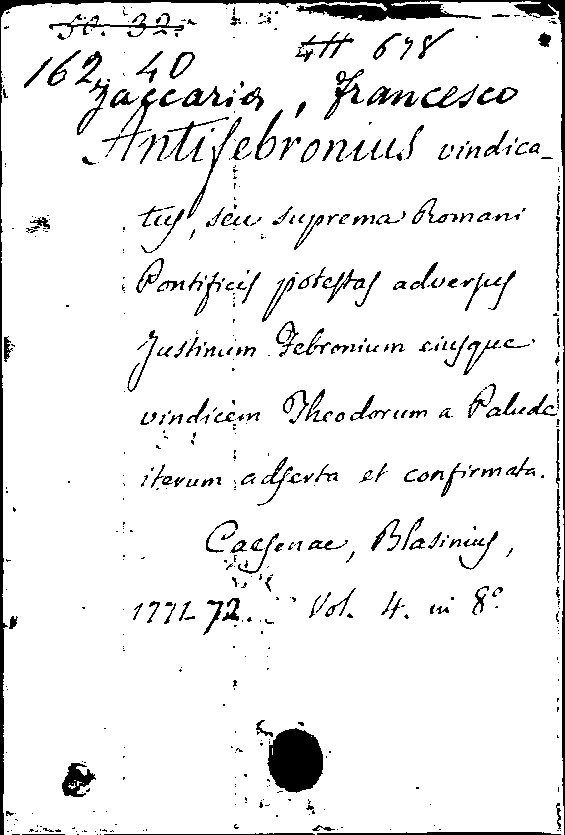 50. 32.
4H 678
162 40
Zaccaria, Francesco
Antifebronius vindica-
tus, seu suprema Romani
Pontificis potestas adversus
Justinum Febronium eiusque
vindicem Theodorum a Palude
iterum adserta et confirmata.
Caesenae, Blasinius,
1771-72. Vol. 4. in 8°